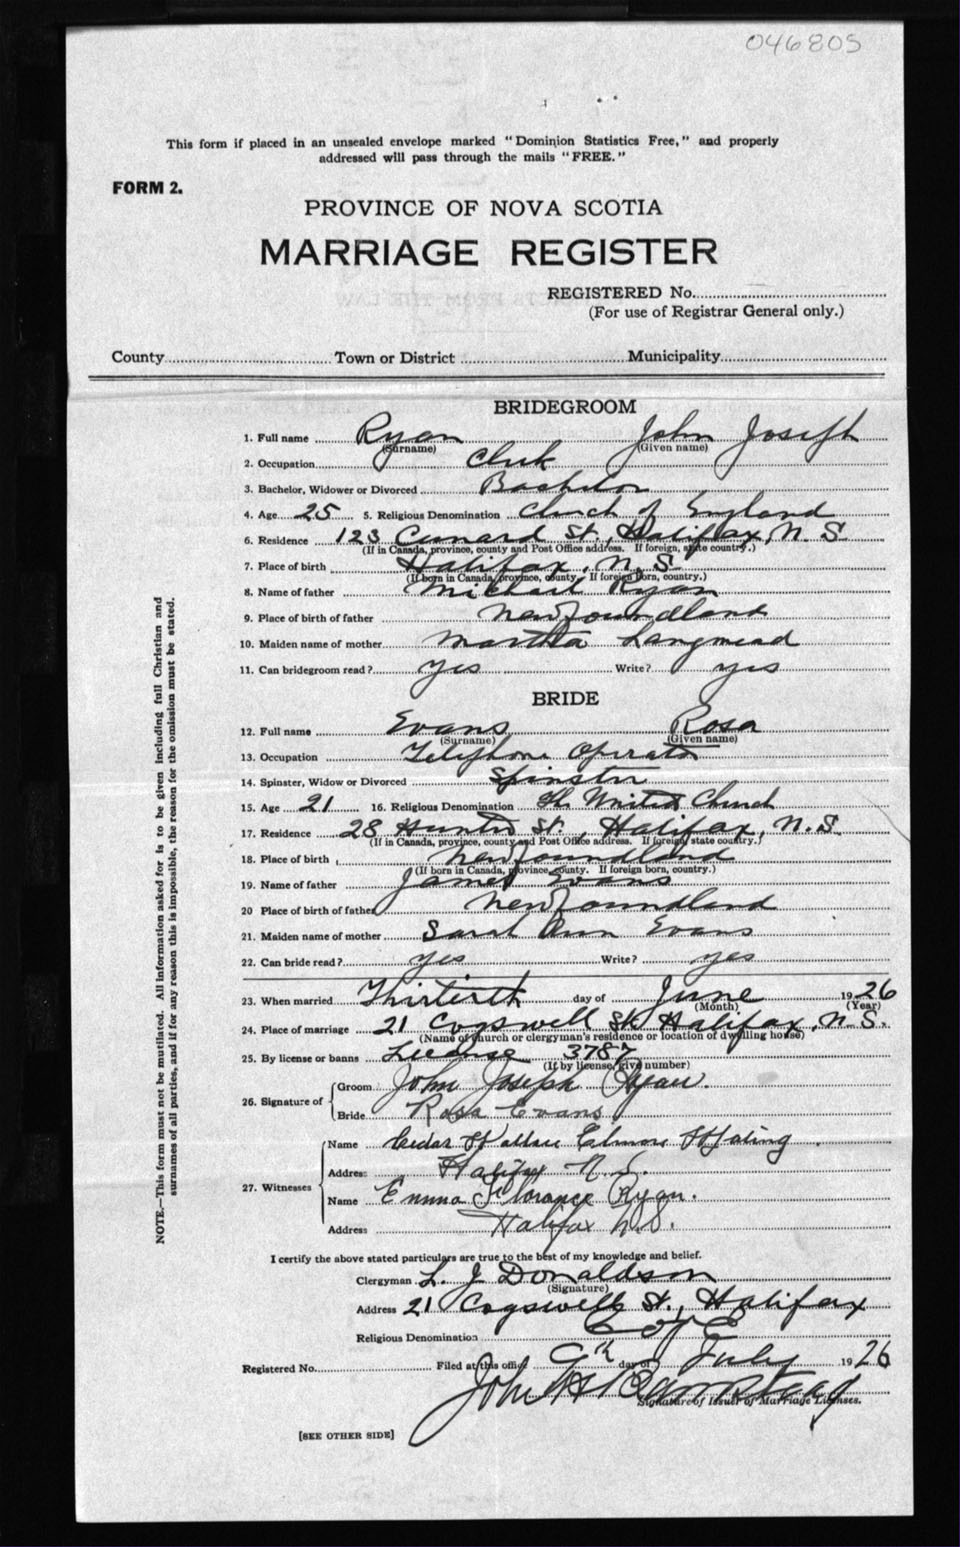 046805
This form if placed in an unsealed envelope marked "Dominion Statistics Free," and properly
addressed will pass through the mails "FREE."
FORM 2.
PROVINCE OF NOVA SCOTIA
MARRIAGE REGISTER
REGISTERED No.
(For use of Registrar General only.)
County Town or District Municipality
BRIDEGROOM
1. Full name Ryan John Joseph
(Surname) (Given name)
2. Occupation Clerk
3. Bachelor, Widower or Divorced Bachelor
4. Age 25 5. Religious Denomination Church of England
6. Residence 123 Cunard St., Halifax, N.S.
(If in Canada, province, county and Post Office address. If foreign, state country.)
7. Place of birth Halifax, N.S.
(If born in Canada, province, county. If foreign born, country.)
8. Name of father Michael Ryan
9. Place of birth of father Newfoundland
10. Maiden name of mother Martha Langmead
11. Can bridegroom read? yes Write? yes
BRIDE
12. Full name Evans Rosa
(Surname) (Given name)
13. Occupation Telephone Operator
14. Spinster, Widow or Divorced Spinster
15. Age 21 16. Religious Denomination The United Church
17. Residence 28 Hunter St., Halifax, N.S.
(If in Canada, province, county and Post Office address. If foreign state country.)
18. Place of birth Newfoundland
(If born in Canada, province, county. If foreign born, country.)
19. Name of father James Evans
20 Place of birth of father Newfoundland
21. Maiden name of mother Sarah Ann Evans
22. Can bride read? yes Write? yes
23. When married Thirtieth day of June 1926
(Month) (Year)
24. Place of marriage 21 Cogswell St. Halifax, N.S.
(Name of church or clergyman's residence or location of dwelling house)
25. By license or banns License 3787
(If by license, give number)
26. Signature of
Groom John Joseph Ryan.
Bride Rosa Evans
27. Witnesses
Name Cedar Wallace Elmore
Address Halifax N.S.
Name Emma Florance Ryan.
Address Halifax N.S.
I certify the above stated particulars are true to the best of my knowledge and belief.
Clergyman L. J Donaldson
(Signature)
Address 21 Cogswell St., Halifax
Religious Denomination C of E
Registered No. Filed at this office 6th day of July 1926
John H Barnstead
Signature of Issuer of Marriage Licenses.
[SEE OTHER SIDE]
NOTE.—This form must not be mutilated. All information asked for is to be given including full Christian and
surnames of all parties, and if for any reason this is impossible, the reason for the omission must be stated.